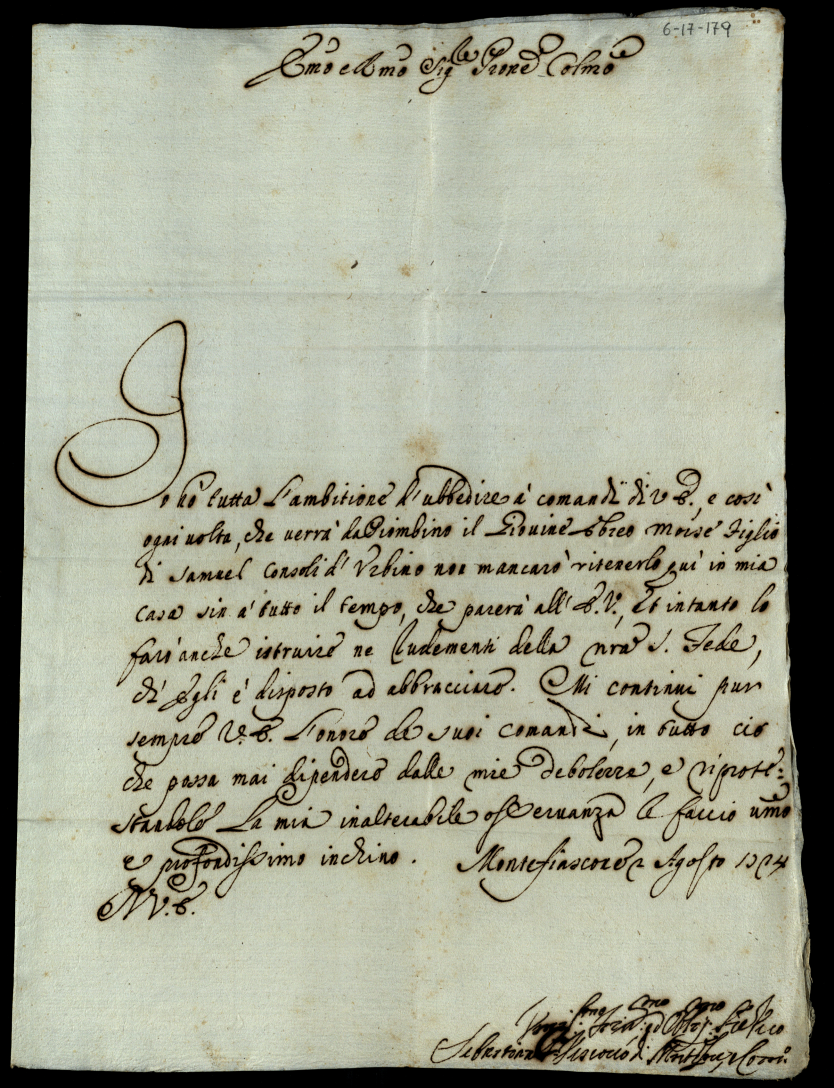 6-17-179
Emo e Rmo Sigre Prone Colmo
Io hò tutta l'ambitione d'ubbedire à comandi di V. E., e così
ogni volta, che verrà da Piombino il Giovine Ebreo Moise Figlio
di Samuel Consoli d'Urbino non mancarò ritenerlo quì in mia
casa sin a' tutto il tempo, che parerà all'E.V., Et intanto lo
farò anche istruire ne Rudementi della nra S. Fede,
ch'Egli è disposto ad abbracciare. Mi continui pur
sempre V. E. l'onore de suoi comandi, in tutto ciò
che possa mai dipendere dalle mie debolezza, e riprote=
standole la mia inalterabile osservanza le faccio umo
e profondissimo inchino. Montefiascone 2 Agosto 1724
V. E.
Sebastiano Vescovo di